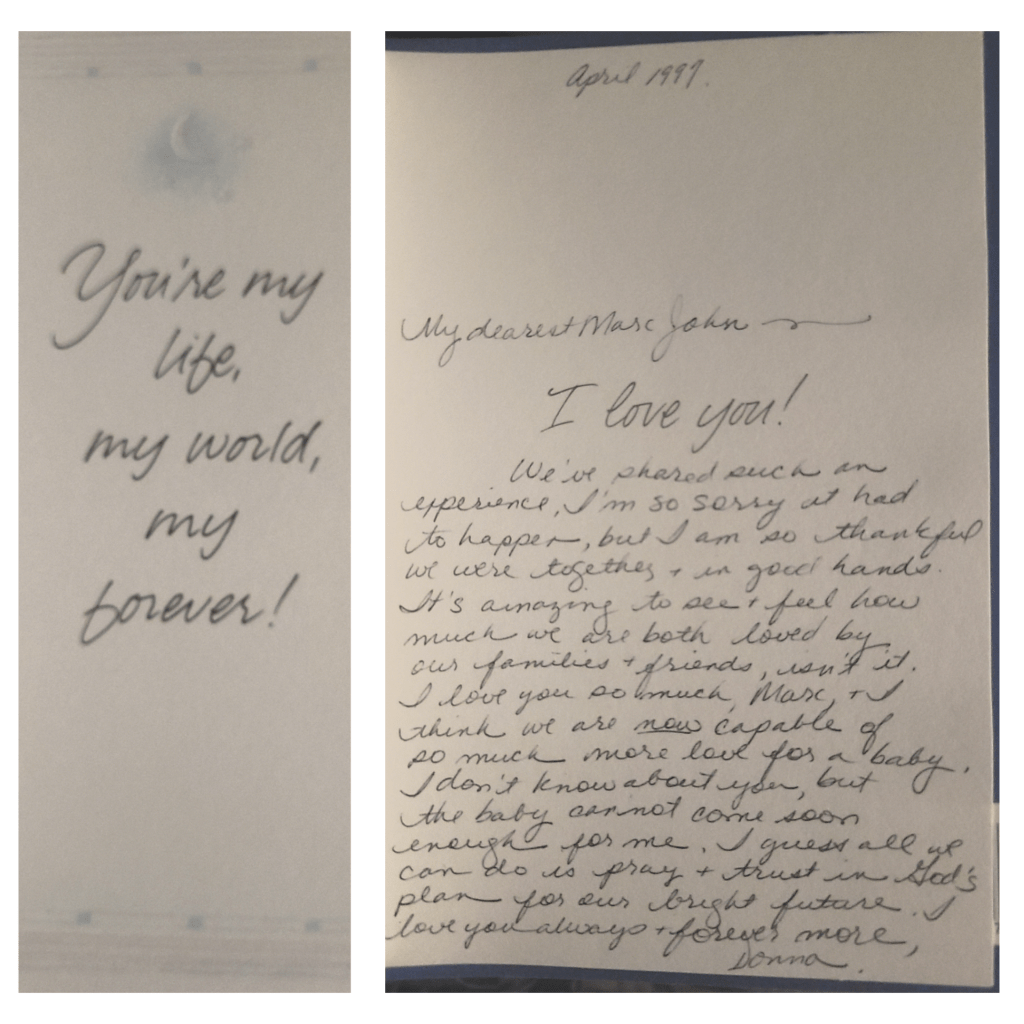 You're my
life,
my world,
my
forever!
April 1997.
My dearest Marc John
I love you!
We've shared such an
experience, I'm so sorry it had
to happen, but I am so thankful
we were together + in good hands.
It's amazing to see + feel how
much we are both loved by
our families + friends, isn't it.
I love you so much, Marc, + I
think we are now capable of
so much more love for a baby.
I don't know about you, but
the baby cannot come soon
enough for me. I guess all we
can do is pray + trust in God's
plan for our bright future. I
love you always + forever more,
Donna.